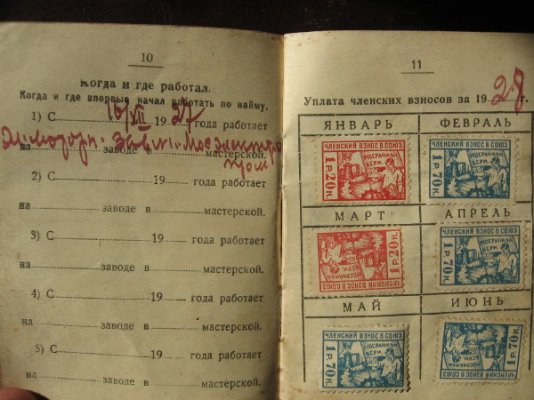 10
Когда и где работал.
Когда и где впервые начал работать по найму.
1) С 16/VII 1927 года работает
на заводе в мастерской.
2) С 19 года работает
на заводе в мастерской.
3) С 19 года работает
на заводе в мастерской.
4) С 19 года работает
на заводе в мастерской.
5) С 19 года работает
на заводе в мастерской.
11
Уплата членских взносов за 1929 г.
ЯНВАРЬ ФЕВРАЛЬ
ЧЛЕНСКИЙ ВЗНОС В СОЮЗ
1 р. 20 к.
ЧЛЕНСКИЙ ВЗНОС В СОЮЗ
1 р. 70 к.
МАРТ АПРЕЛЬ
ЧЛЕНСКИЙ ВЗНОС В СОЮЗ
1 р. 20 к.
ЧЛЕНСКИЙ ВЗНОС В СОЮЗ
1 р. 70 к.
МАЙ ИЮНЬ
ЧЛЕНСКИЙ ВЗНОС В СОЮЗ
1 р. 70 к.
ЧЛЕНСКИЙ ВЗНОС В СОЮЗ
1 р. 70 к.